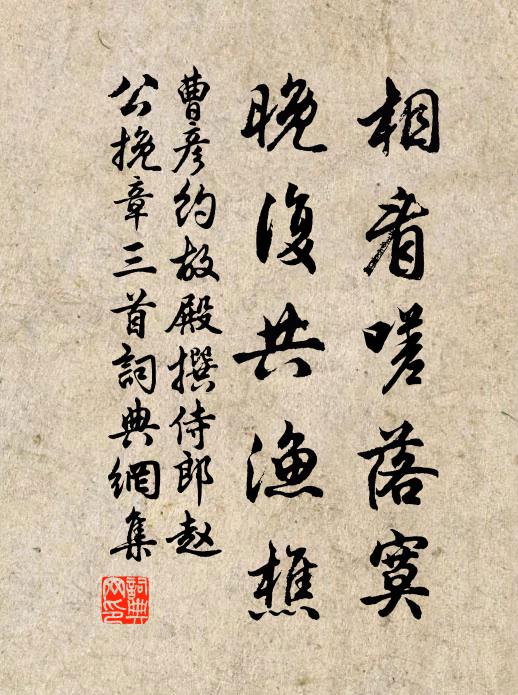 相看嗟落寞
晚復共漁樵
曹彦約故殿撰侍郎赵
公挽章三首詞典網集
詞典網印